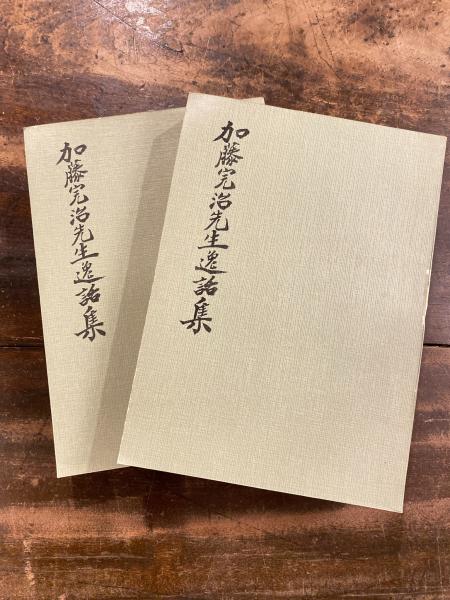 加藤完治先生逸話集
加藤完治先生逸話集